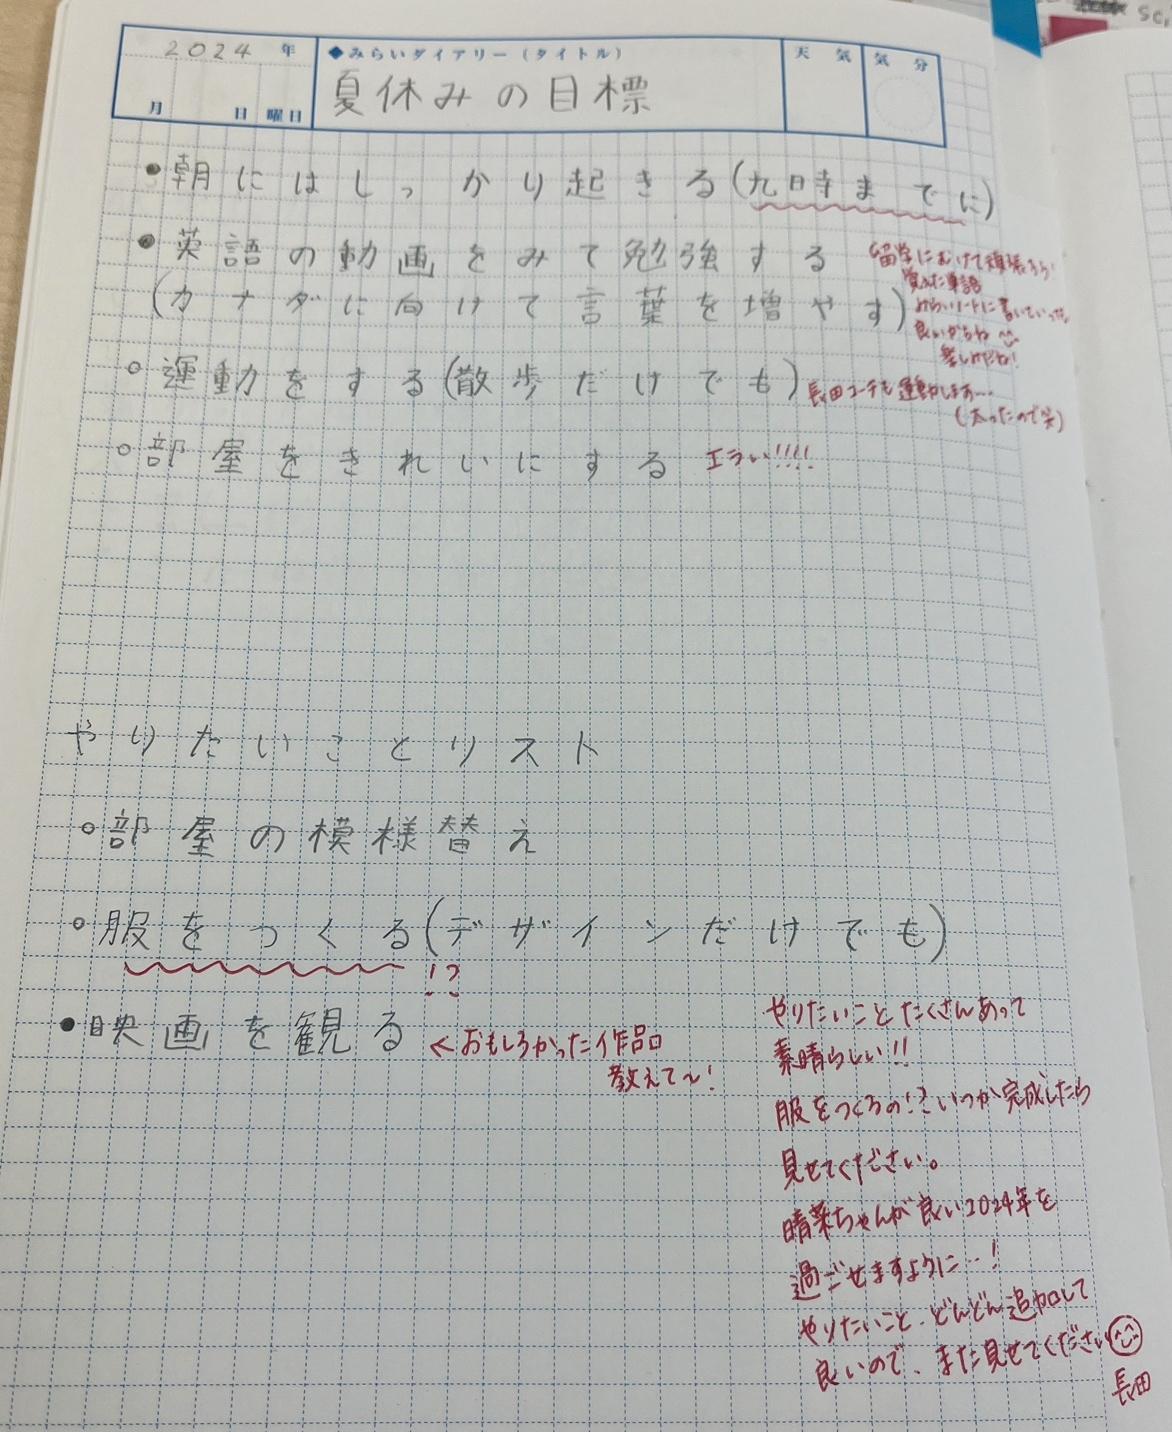 2024 年
月 日 曜日
◆みらいダイアリー（タイトル）
夏休みの目標
天 気
気 分
●朝にはしっかり起きる(九時までに)
●英語の動画をみて勉強する
(カナダに向けて言葉を増やす)
留学にむけて頑張ろう!
覚えた単語
みらいノートに書いていっても
良いかもね
楽しみだね!
○運動をする(散歩だけでも)
長田コーチも運動します...
(太ったので笑)
○部屋をきれいにする
エラい!!!!
やりたいことリスト
○部屋の模様替え
○服をつくる(デザインだけでも)
!?
●映画を観る
<おもしろかった作品
教えて〜!
やりたいことたくさんあって
素晴らしい!!
服をつくるの!?いつか完成したら
見せてください。
晴菜ちゃんが良い2024年を
過ごせますように…!
やりたいこと、どんどん追加して
良いので、また見せてください
長田